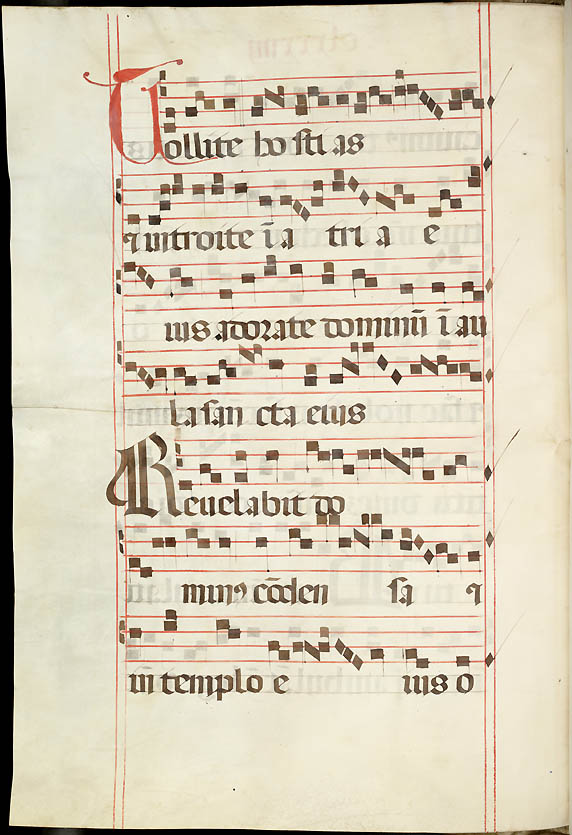 Tollite hosti as
⁊ introite ī a tri a e
ius adorate dominū ī au
la san cta eius
Reuelabit do
minꝰ cōden sa ⁊
in̄ templo e ius o